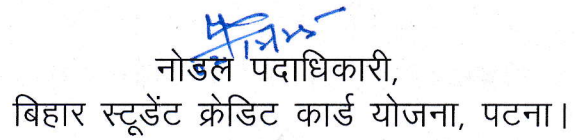 नोडल पदाधिकारी,
बिहार स्टूडेंट क्रेडिट कार्ड योजना, पटना।